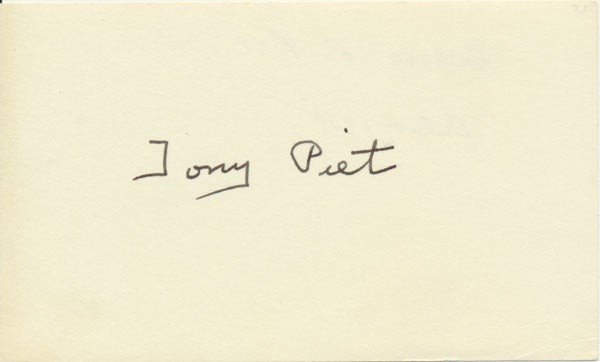 Tony Piet